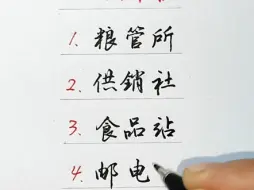 1. 粮管所
2. 供销社
3. 食品站
4. 邮电